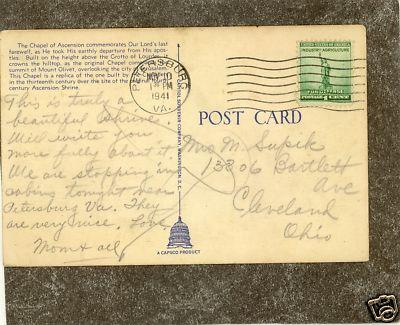 The Chapel of Ascension commemorates Our Lord's last
farewell, as He took His earthly departure from His apos-
tles. Built on the height above the Grotto of Lourdes, it
crowns the hilltop, as the original Chapel com
summit of Mount Olivet, overlooking the city
This Chapel is a replica of the one built by
in the thirteenth century over the site of the
century Ascension Shrine.
PETERSBURG
NOV 10
1 PM
1941
VA.
UNITED STATES OF AMERICA
INDUSTRY AGRICULTURE
FOR DEFENSE
POSTAGE 1 CENT
This is truly a
beautiful shrine
Will write you
more fully about it
We are stopping in
cabins tonight near
Petersburg Va. They
are very nice. Love
Mom & all
CAPITOL SOUVENIR COMPANY, WASHINGTON, D.C.
A CAPSCO PRODUCT
POST CARD
Mrs M. Supik
13806 Bartlett
Ave
Cleveland
Ohio